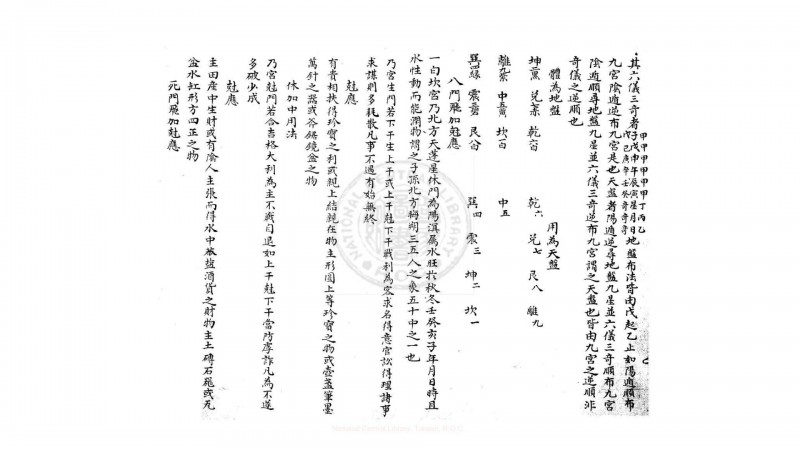 其六儀三奇者甲子戊甲戌己甲申庚甲午辛甲辰壬甲寅癸丁星奇丙月奇乙日奇地盤布法皆由戊起乙止如陽遁順布
九宮陰遁逆布九宮是也天盤者陽遁逆尋地盤九星並六儀三奇順布九宮
陰遁順尋地盤九星並六儀三奇逆布九宮謂之天盤也皆由九宮之逆順非
奇儀之逆順也
體為地盤 用為天盤
坤二黑 兌七赤 乾六白 乾六 兌七 艮八 離九
離九紫 中五黃 坎一白 中五
巽四綠 震三碧 艮八白 巽四 震三 坤二 坎一
一白坎宮乃北方天蓬星休門為陽溟屬水旺於秋冬壬癸亥子年月日時且
水性動而能潤物謂之子孫北方梅朔三五八之象五十中之一也
八門飛加尅應
乃宮生門若下干生上干或上干尅下干戰利為客求名得意官訟得理諸事
求謀則多耗散凡事不過有始無終
尅應
有貴相扶得珍寶之利或親上結親在物主形圓上等珍寶之物或壺盞筆墨
萬針之器或斧鋸鏡盆之物
休加中用法
乃宮尅門若合吉格大利為主不戰自退如上干尅下干當防虛詐凡為不遂
多破少成
尅應
主田産中生財或有陰人主張而得水中魚鹽酒貨之財物主土磚石飛或瓦
盆水缸形方四正之物
死門飛加尅應